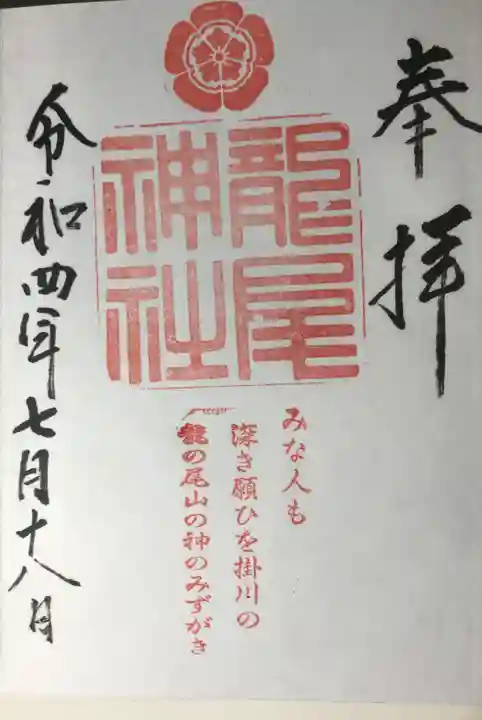 奉拝
龍尾
神社
みな人も
深き願ひを掛川の
龍の尾山の神のみずがき
令和四年七月十八日